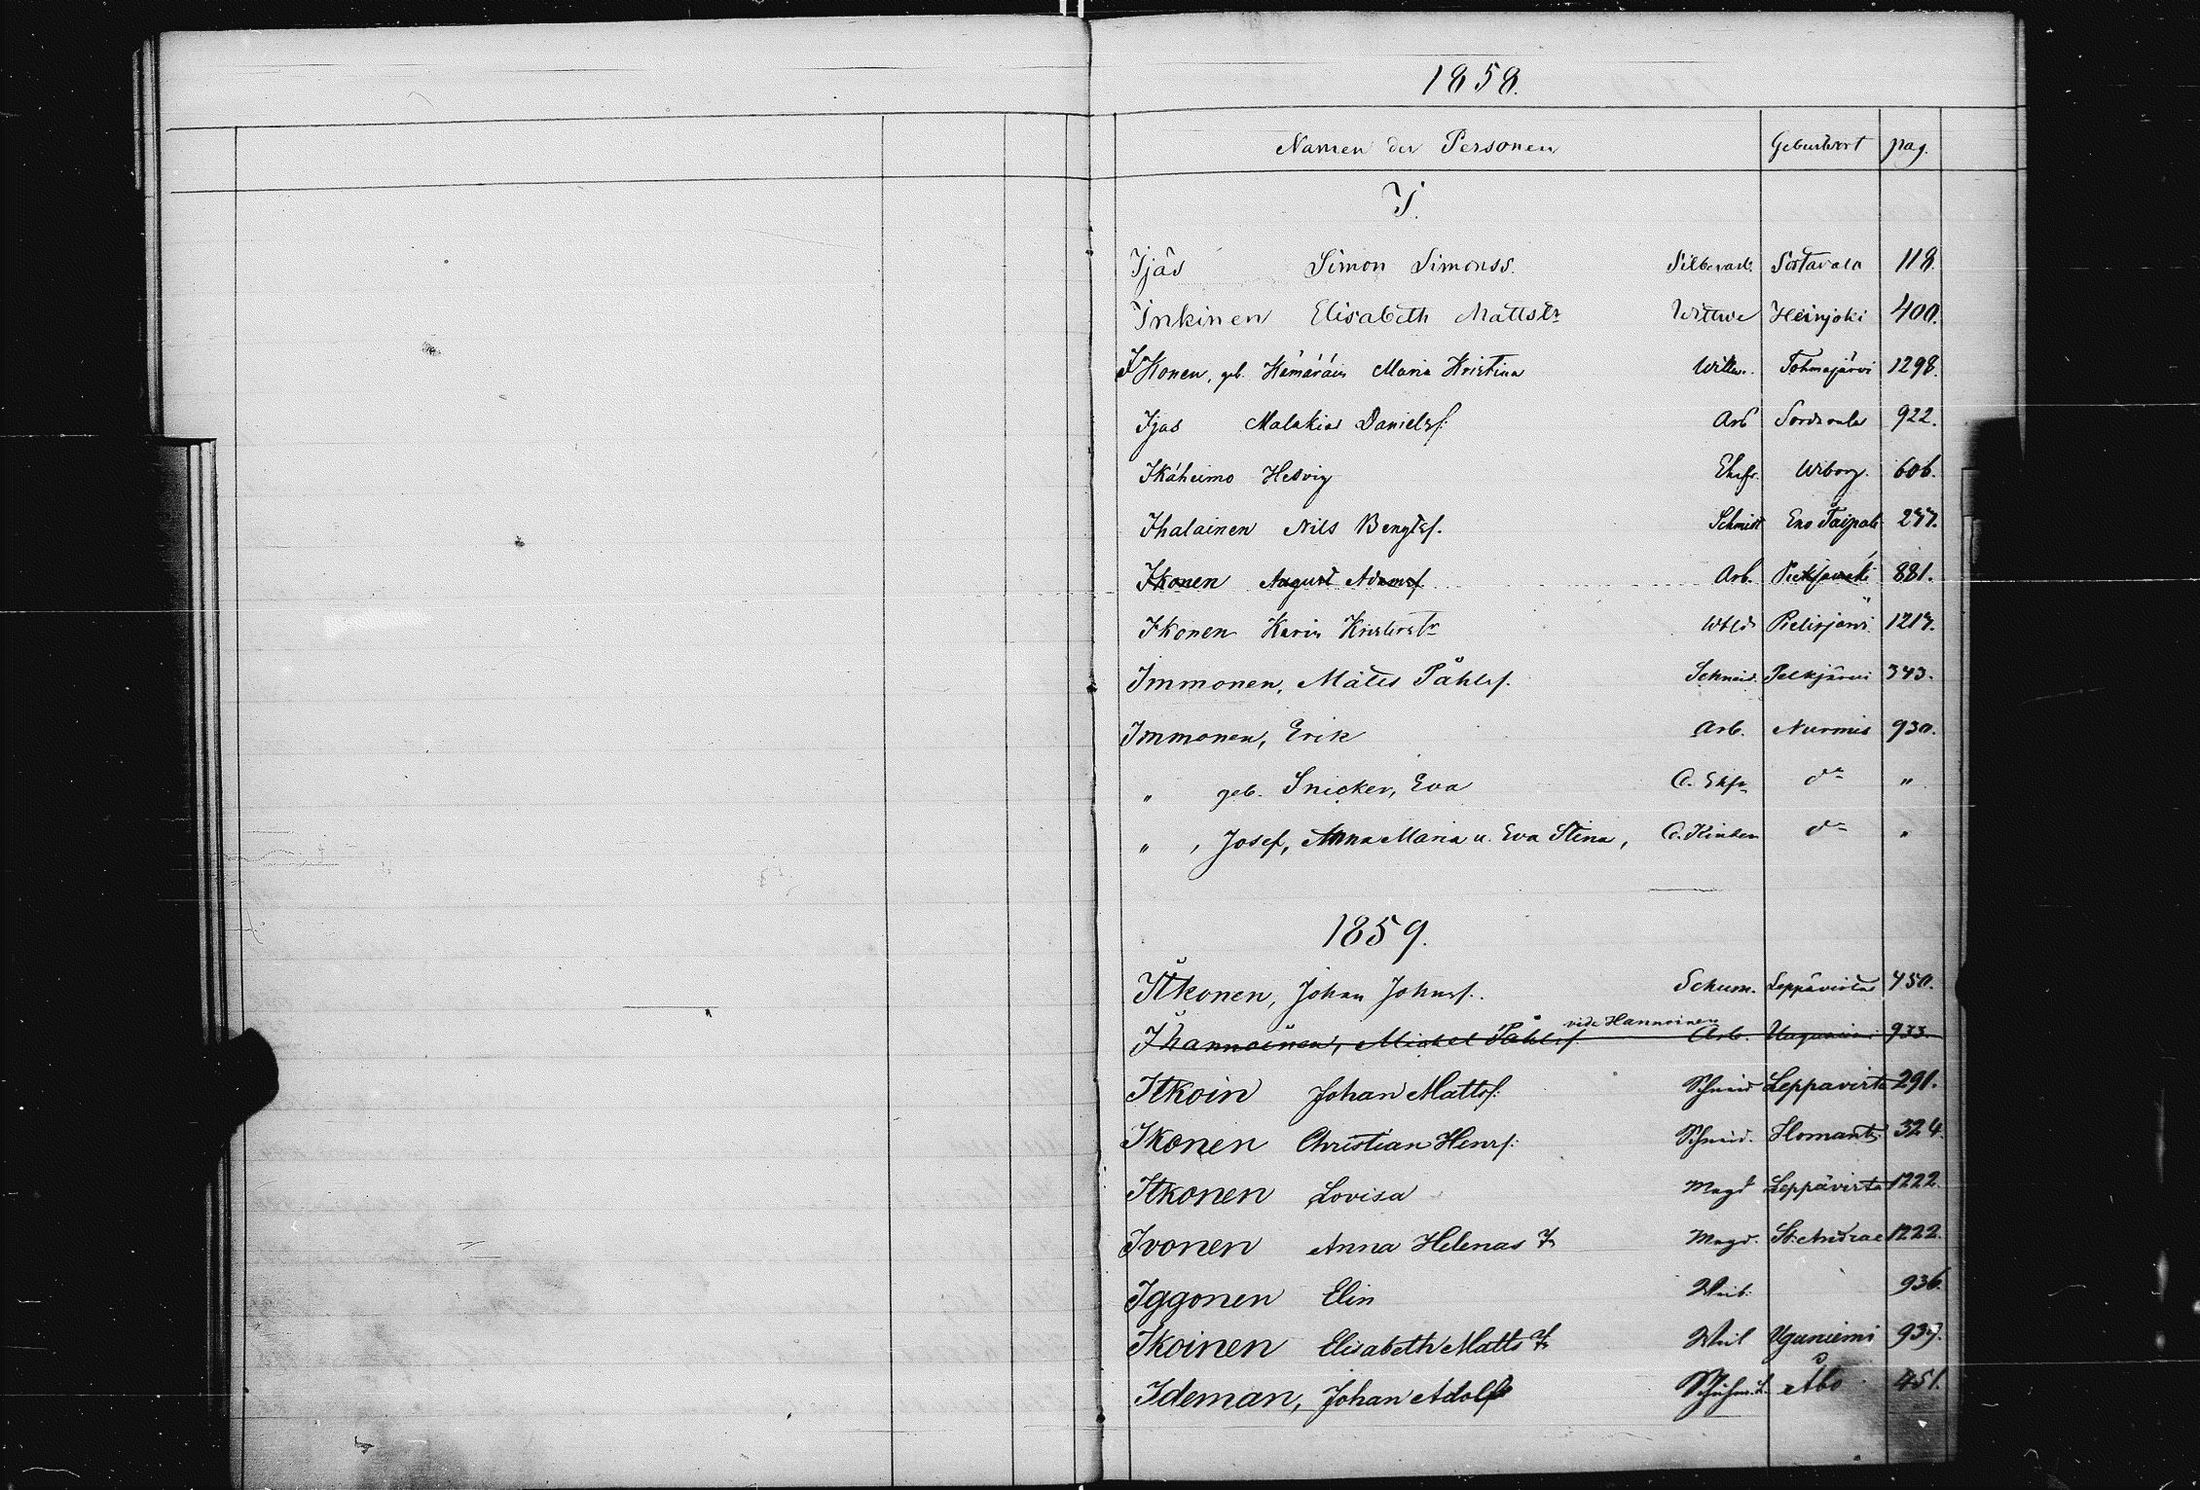 1858.
Namen der Personen Geburtsort pag.
I.
Ijäs Simon Simonss. Silberarb. Sortavala 118.
Inkinen Elisabeth Mattstr Wittwe Heinjoki 400.
Ikonen, geb. Hämäräin Maria Kristina Wittw. Tohmajärvi 1298.
Ijas Malakias Danielsf. Arb Sordavala 922.
Ikäheimo Hedvig Ehefr. Wiborg. 606.
Ihalainen Nils Bengtsf. Schmidt Eno Taipale 277.
Ikonen August Adamsf. Arb. 881.
Ikonen Karin Kristerstr Wbld. Pielisjärvi 1217.
Immonen, Matts Påhlsf. Schneid. Pelkjärvi 343.
Immonen, Erik Arb. Nurmis 930.
" geb. Snicker, Eva d. Ehfr do "
" , Josef, Anna Maria u. Eva Stina, d. Kinder do "
1859.
Itkonen, Johan Johnsf. Schum. Leppävirta 450.
vide Hannoinen
Ihannoinen, Mickel Påhlsf Arb. Uguniemi 933.
Itkoin Johan Mattsf. Schneid Leppavirta 291.
Ikonen Christian Henrf. Schneid. Ilomants 324.
Itkonen Lovisa Magd Leppävirta 1222.
Ivonen Anna Helenas T. Magd. St. Andreae 1222.
Iggonen Elin Weib. 936.
Ikoinen Elisabeth Matts T. Weib Uguniemi 937.
Ideman, Johan Adolf Schuhm. L. Åbo 451.